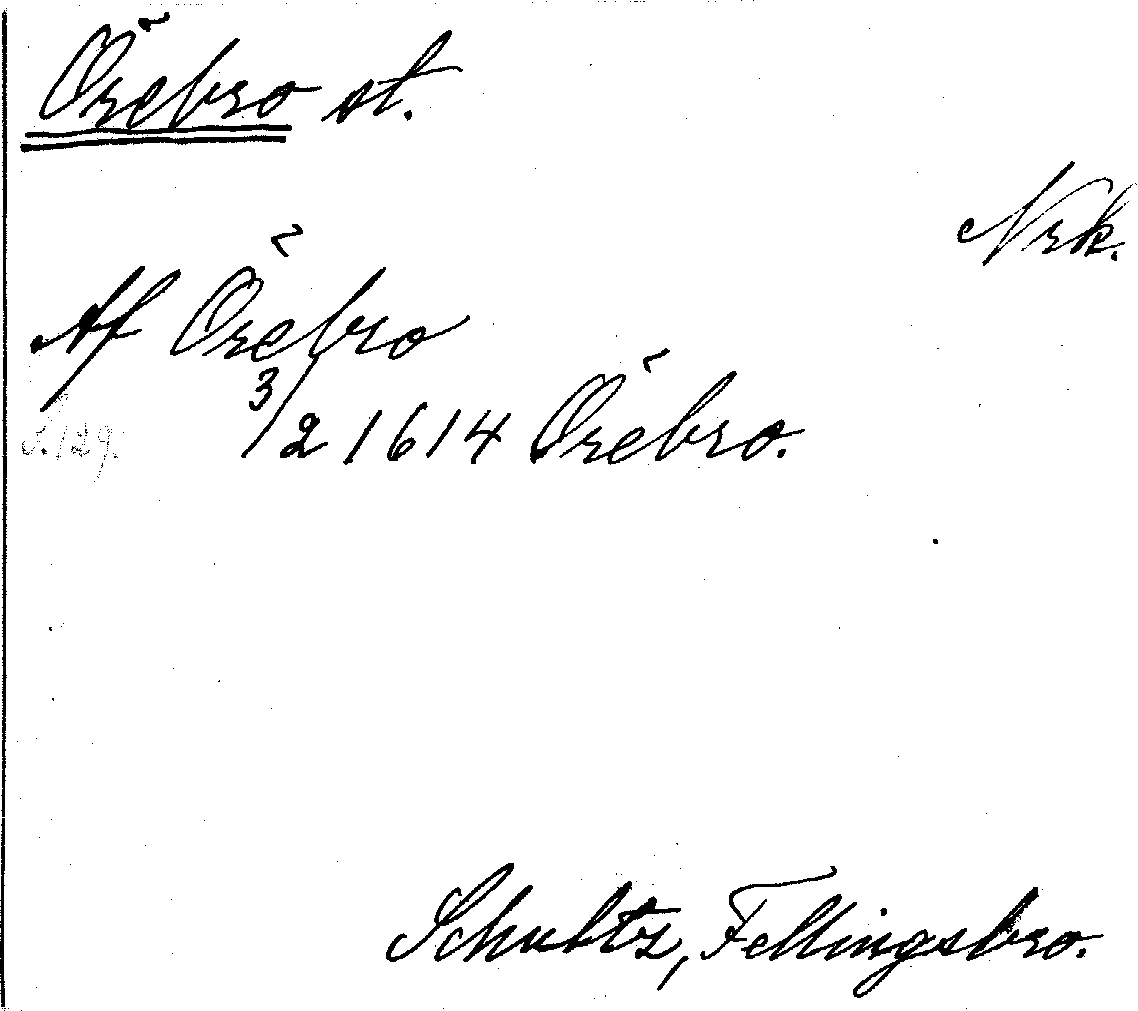 Örebro st.
Nrk.
Af Örebro
3/2 1614 Örebro.
S. 129.
Schultz, Fellingsbro.